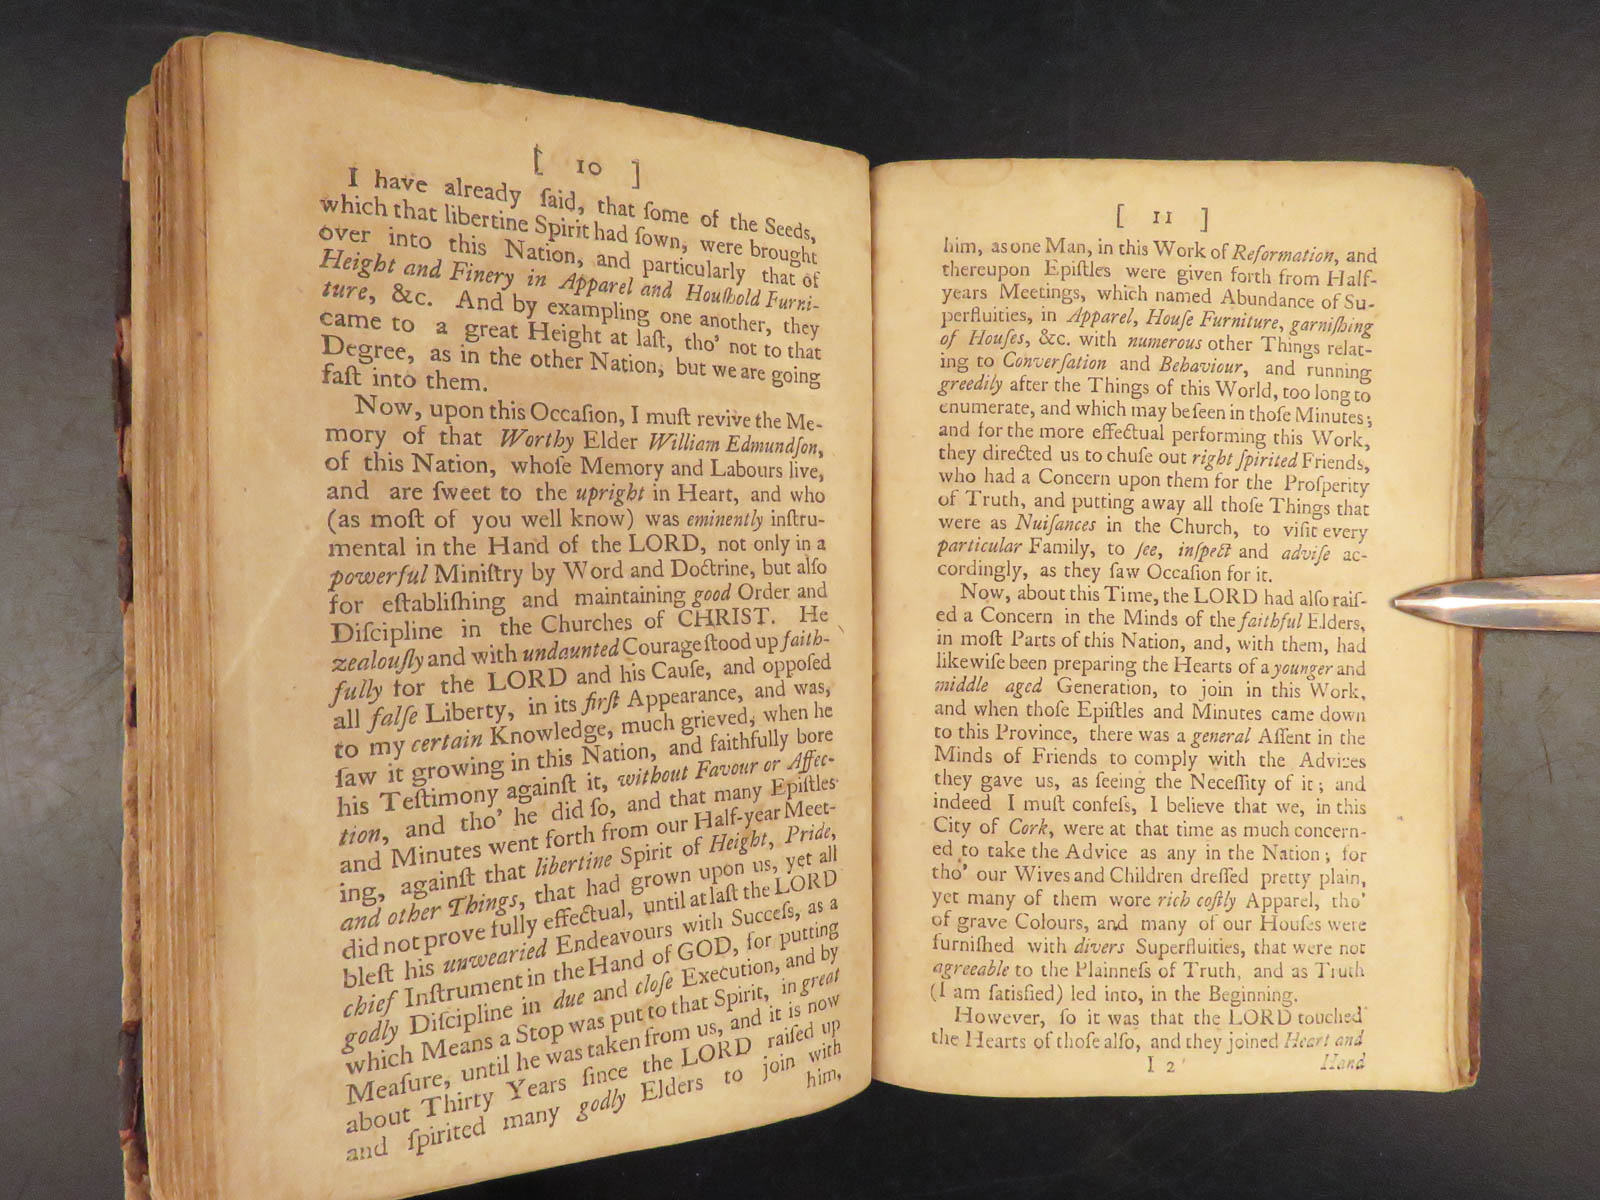 [ 10 ]
I have already ſaid, that ſome of the Seeds,
which that libertine Spirit had ſown, were brought
over into this Nation, and particularly that of
Height and Finery in Apparel and Houſhold Furni-
ture, &c. And by exampling one another, they
came to a great Height at laſt, tho' not to that
Degree, as in the other Nation, but we are going
faſt into them.
Now, upon this Occaſion, I muſt revive the Me-
mory of that Worthy Elder William Edmundſon,
of this Nation, whoſe Memory and Labours live,
and are ſweet to the upright in Heart, and who
(as moſt of you well know) was eminently inſtru-
mental in the Hand of the LORD, not only in a
powerful Miniſtry by Word and Doctrine, but alſo
for eſtabliſhing and maintaining good Order and
Diſcipline in the Churches of CHRIST. He
zealouſly and with undaunted Courage ſtood up faith-
fully for the LORD and his Cauſe, and oppoſed
all falſe Liberty, in its firſt Appearance, and was,
to my certain Knowledge, much grieved, when he
ſaw it growing in this Nation, and faithfully bore
his Teſtimony againſt it, without Favour or Affec-
tion, and tho' he did ſo, and that many Epiſtles
and Minutes went forth from our Half-year Meet-
ing, againſt that libertine Spirit of Height, Pride,
and other Things, that had grown upon us, yet all
did not prove fully effectual, until at laſt the LORD
bleſt his unwearied Endeavours with Succeſs, as a
chief Inſtrument in the Hand of GOD, for putting
godly Diſcipline in due and cloſe Execution, and by
which Means a Stop was put to that Spirit, in great
Meaſure, until he was taken from us, and it is now
about Thirty Years ſince the LORD raiſed up
and ſpirited many godly Elders to join with
him,
[ 11 ]
him, as one Man, in this Work of Reformation, and
thereupon Epiſtles were given forth from Half-
years Meetings, which named Abundance of Su-
perfluities, in Apparel, Houſe Furniture, garniſhing
of Houſes, &c. with numerous other Things relat-
ing to Converſation and Behaviour, and running
greedily after the Things of this World, too long to
enumerate, and which may be ſeen in thoſe Minutes;
and for the more effectual performing this Work,
they directed us to chuſe out right ſpirited Friends,
who had a Concern upon them for the Proſperity
of Truth, and putting away all thoſe Things that
were as Nuiſances in the Church, to viſit every
particular Family, to ſee, inſpect and adviſe ac-
cordingly, as they ſaw Occaſion for it.
Now, about this Time, the LORD had alſo raiſ-
ed a Concern in the Minds of the faithful Elders,
in moſt Parts of this Nation, and, with them, had
likewiſe been preparing the Hearts of a younger and
middle aged Generation, to join in this Work,
and when thoſe Epiſtles and Minutes came down
to this Province, there was a general Aſſent in the
Minds of Friends to comply with the Advices
they gave us, as ſeeing the Neceſſity of it; and
indeed I muſt confeſs, I believe that we, in this
City of Cork, were at that time as much concern-
ed to take the Advice as any in the Nation; for
tho' our Wives and Children dreſſed pretty plain,
yet many of them wore rich coſtly Apparel, tho'
of grave Colours, and many of our Houſes were
furniſhed with divers Superfluities, that were not
agreeable to the Plainneſs of Truth, and as Truth
(I am ſatisfied) led into, in the Beginning.
However, ſo it was that the LORD touched
the Hearts of thoſe alſo, and they joined Heart and
I 2
Hand